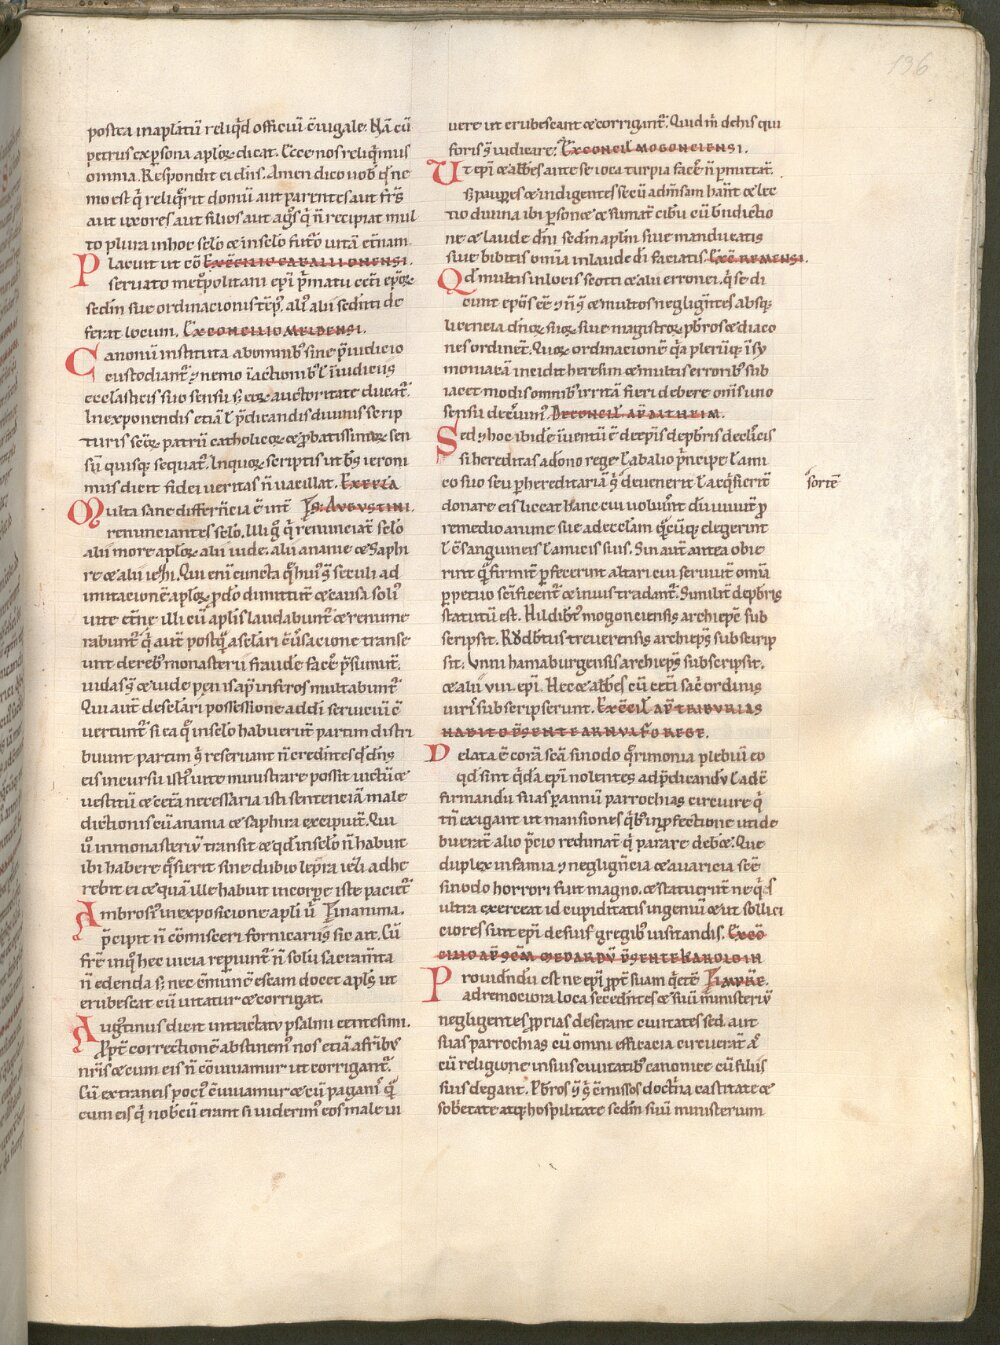 196
postea in aplatu reliqd officiu ciugale. Nã cũ
petrus ex psona aploꝝ dicat. Ecce nos reliqmus
omnia. Respondit ei dñs. Amen dico uob qꝛ ne
mo est q̇ reliqrit domũ aut parentes aut frs̃
aut uxores aut filios aut agͦs q̇ ñ recipiat mul
to plura in hoc sclo & in sclo futͦo uitã et̃nam.
Placuit ut cõ Ex cõcilio caballionensi.
seruato met͛politani epĩ p̃matu cet̃i ep̃oꝝ
scdm sue ordinacionis tẽp̾. ali᷒ abi sedĩti de
ferat locum. Ex concilio meldensi.
Canonũ instituta ab omnib᷒ sine p̃iudicio
custodiant᷒. ⁊ nemo ĩ actionib᷒ ł iudiciis
ecclasticis suo sensu s; eoꝝ auctoritate ducat᷒.
In exponendis etiã ł p̃dicandis diuinis scrip
turis sc̃oꝝ patrũ catholicoꝝ & p̱batissimoꝝ sen
sũ quisq; sequat᷒. In quoꝝ scriptis ut bs̃ ieroni
mus dicit fidei ueritas ñ uacillat. Ex ep̃la
Multa sane differñcia ẽ int̃ S: Augustini.
renunciantes sclo. Illi g̊ q̇ renunciat̃ sclo
alii more aploꝝ. alii iude. alii ananie & Saphi
re & alii iezi. Qui eni cuncta q̃ hui᷒ s̃ seculi ad
imitacionẽ aploꝝ p̱ do dimittũt & causa soli᷒
uite et̃ne. illi cũ aplis laudabunt᷒ & renume
rabunt᷒. q̇ aut̃ postq̃ a sclari cũsacione transe
unt de reb᷒ monasterii fraudẽ facẽ p̃sumũt.
iudas q̇ & iude penis ap̃ inferos multabunt᷒
Qui aut̃ de sclari possessione ad dei seruiciũ ẽ
uertunt᷒ si ea q̃ in sclo habuerũt partim distri
buunt partim s̃ reseruant ñ credĩtes qd dñs
eis in cursu isti᷒ uite ministrare possit uictũ &
uestitũ & cet̃a necessaria isti sentenciã male
dictionis cũ anania & saphira excipiũt. Qui
ũ in monasteriũ transit & qd in sclo ñ habuit
ibi habere q̃sierit sine dubio lepra iezi adhe
rebit ei & quã ille habuit in corpe iste paciet᷒
Ambrosi᷒ in exposicione apli ũ in anima.
p̃cipit ñ cõmisceri fornicariis sic ait. Cũ
frẽ inq̇ hec uicia repiunt᷒ ñ solũ sacram̃ta
ñ edenda s; nec cõmunẽ escam docet apls ut
erubescat cũ uitatur & corrigat.
Augustinus dicit in tractatu psalmi centesimi.
Propt̃ correctionẽ abstinem᷒ nos etiã a frib᷒
nr̃is & cum eis ñ cõuiuamur ut corrigant᷒.
Cũ extraneis poci᷒ cũiuamur & cũ pagani᷒ q̃
cum eis q̇ nob cũ erant si uiderim᷒ eos male ui
uere ut erubescant & corrigant᷒. Quid m̃ de his qui
foris s̃ iudicare. Ex concil mogonciensi.
Ut epĩ & abb̃es ante se ioca turpia facẽ ñ p̱mittãt.
S; paup̱es & indigentes secũ ad m̃sam habñt & lec
tio diuina ibi p̱sonet & sumat̃ cibũ cũ b̃ndictio
ne & laude dñi scdm aplm siue manducatis
siue bibitis omĩa in laude di faciatis. Ex cõ Remensi.
Qd multis in locis scotti & alii erronei. q̇ se di
cunt ep̃os eẽ ⁊ ñ s̃ & multos negligñtes absq;
licencia dñoꝝ suoꝝ siue magistroꝝ p̱bros & diaco
nes ordinẽt. Quoꝝ ordinacionẽ q̃a pleruq; ĩ sy
moniacã incidit heresim & multis errorib᷒ sub
iacet modis omnib᷒ irritã fieri debere omĩs uno
sensu decũim᷒. De concil ap̃ altheim.
Sed ⁊ hoc ibidẽ ĩuentũ ẽ de epĩs de p̱bris de cl̃icis
si hereditas a dono rege ł ab alio p̃ncipe ł ami
co suo seu p̱ hereditariã s̃ deuenerit ł acq̃sierit
sortẽ
donare eis liceat hanc cui uoluñt dũ uiuũt p̱
remedio anime sue ad ecclam q̃cũq; elegerint
ł cõsanguineis ł amicis suis. Sin aut̃ antea obie
rint q̃ firmit̃ p̱fecerint altari cui seruiũt omĩa
p̱petuo sc̃ificent᷒ & in usũ tradant᷒. Similit̃ de p̱bris
statutũ est. Hildib̾t᷒ mogonciensis archiepc sub
scripsit. Rǒdb̾tus treuerensis archiepc subscrip
sit. Vnni hamaburgensis archiepc subscripsit.
& alii viii. epĩ. Hec & abb̃es cũ cet̃i sac̃ ordinis
uiri᷒ subscripserunt. Ex cõcil ap̃ triburias
habito p̃sente Arnulfo rege.
Delata ẽ corã sc̃a sinodo q̃rimonia plebiũ eo
qd sint q̇dã epĩ nolentes ad p̃dicandũ ł ad cõ
firmandũ suas p̱ annũ parrochias circuire q̇
tñ exigant ut mansiones q̇b᷒ in p̱fectione uti de
buerãt alio p̃cio redimãt q̇ parare deb&. Que
duplex infamia ⁊ negligñcia & auaricia sc̃e
sinodo horrori fuit magno. & statuerũt ne q̇s
ultra exerceat id cupiditatis ingeniũ & ut sollici
ciores sint epĩ de suis gregib᷒ uisitandis. Ex cõ
cilio ap̃ scm̃ medardũ p̃sente karolo in
Prouidndũ est ne epĩ p̱pt̃ suam q̇etẽ Tampr̃e.
ad remociora loca secedñtes & suũ ministeriũ
negligentes p̱prias deserant ciuitates sed aut
suas parrochias cũ omni efficacia circueãt aut
cũ religione in suis ciuitatib᷒ canonice cũ filiis
suis degant. P̱bros q̇ s̃ ẽmissos doct̃na castitate &
sob̾etate atq; hospilitate scdm suũ ministerium